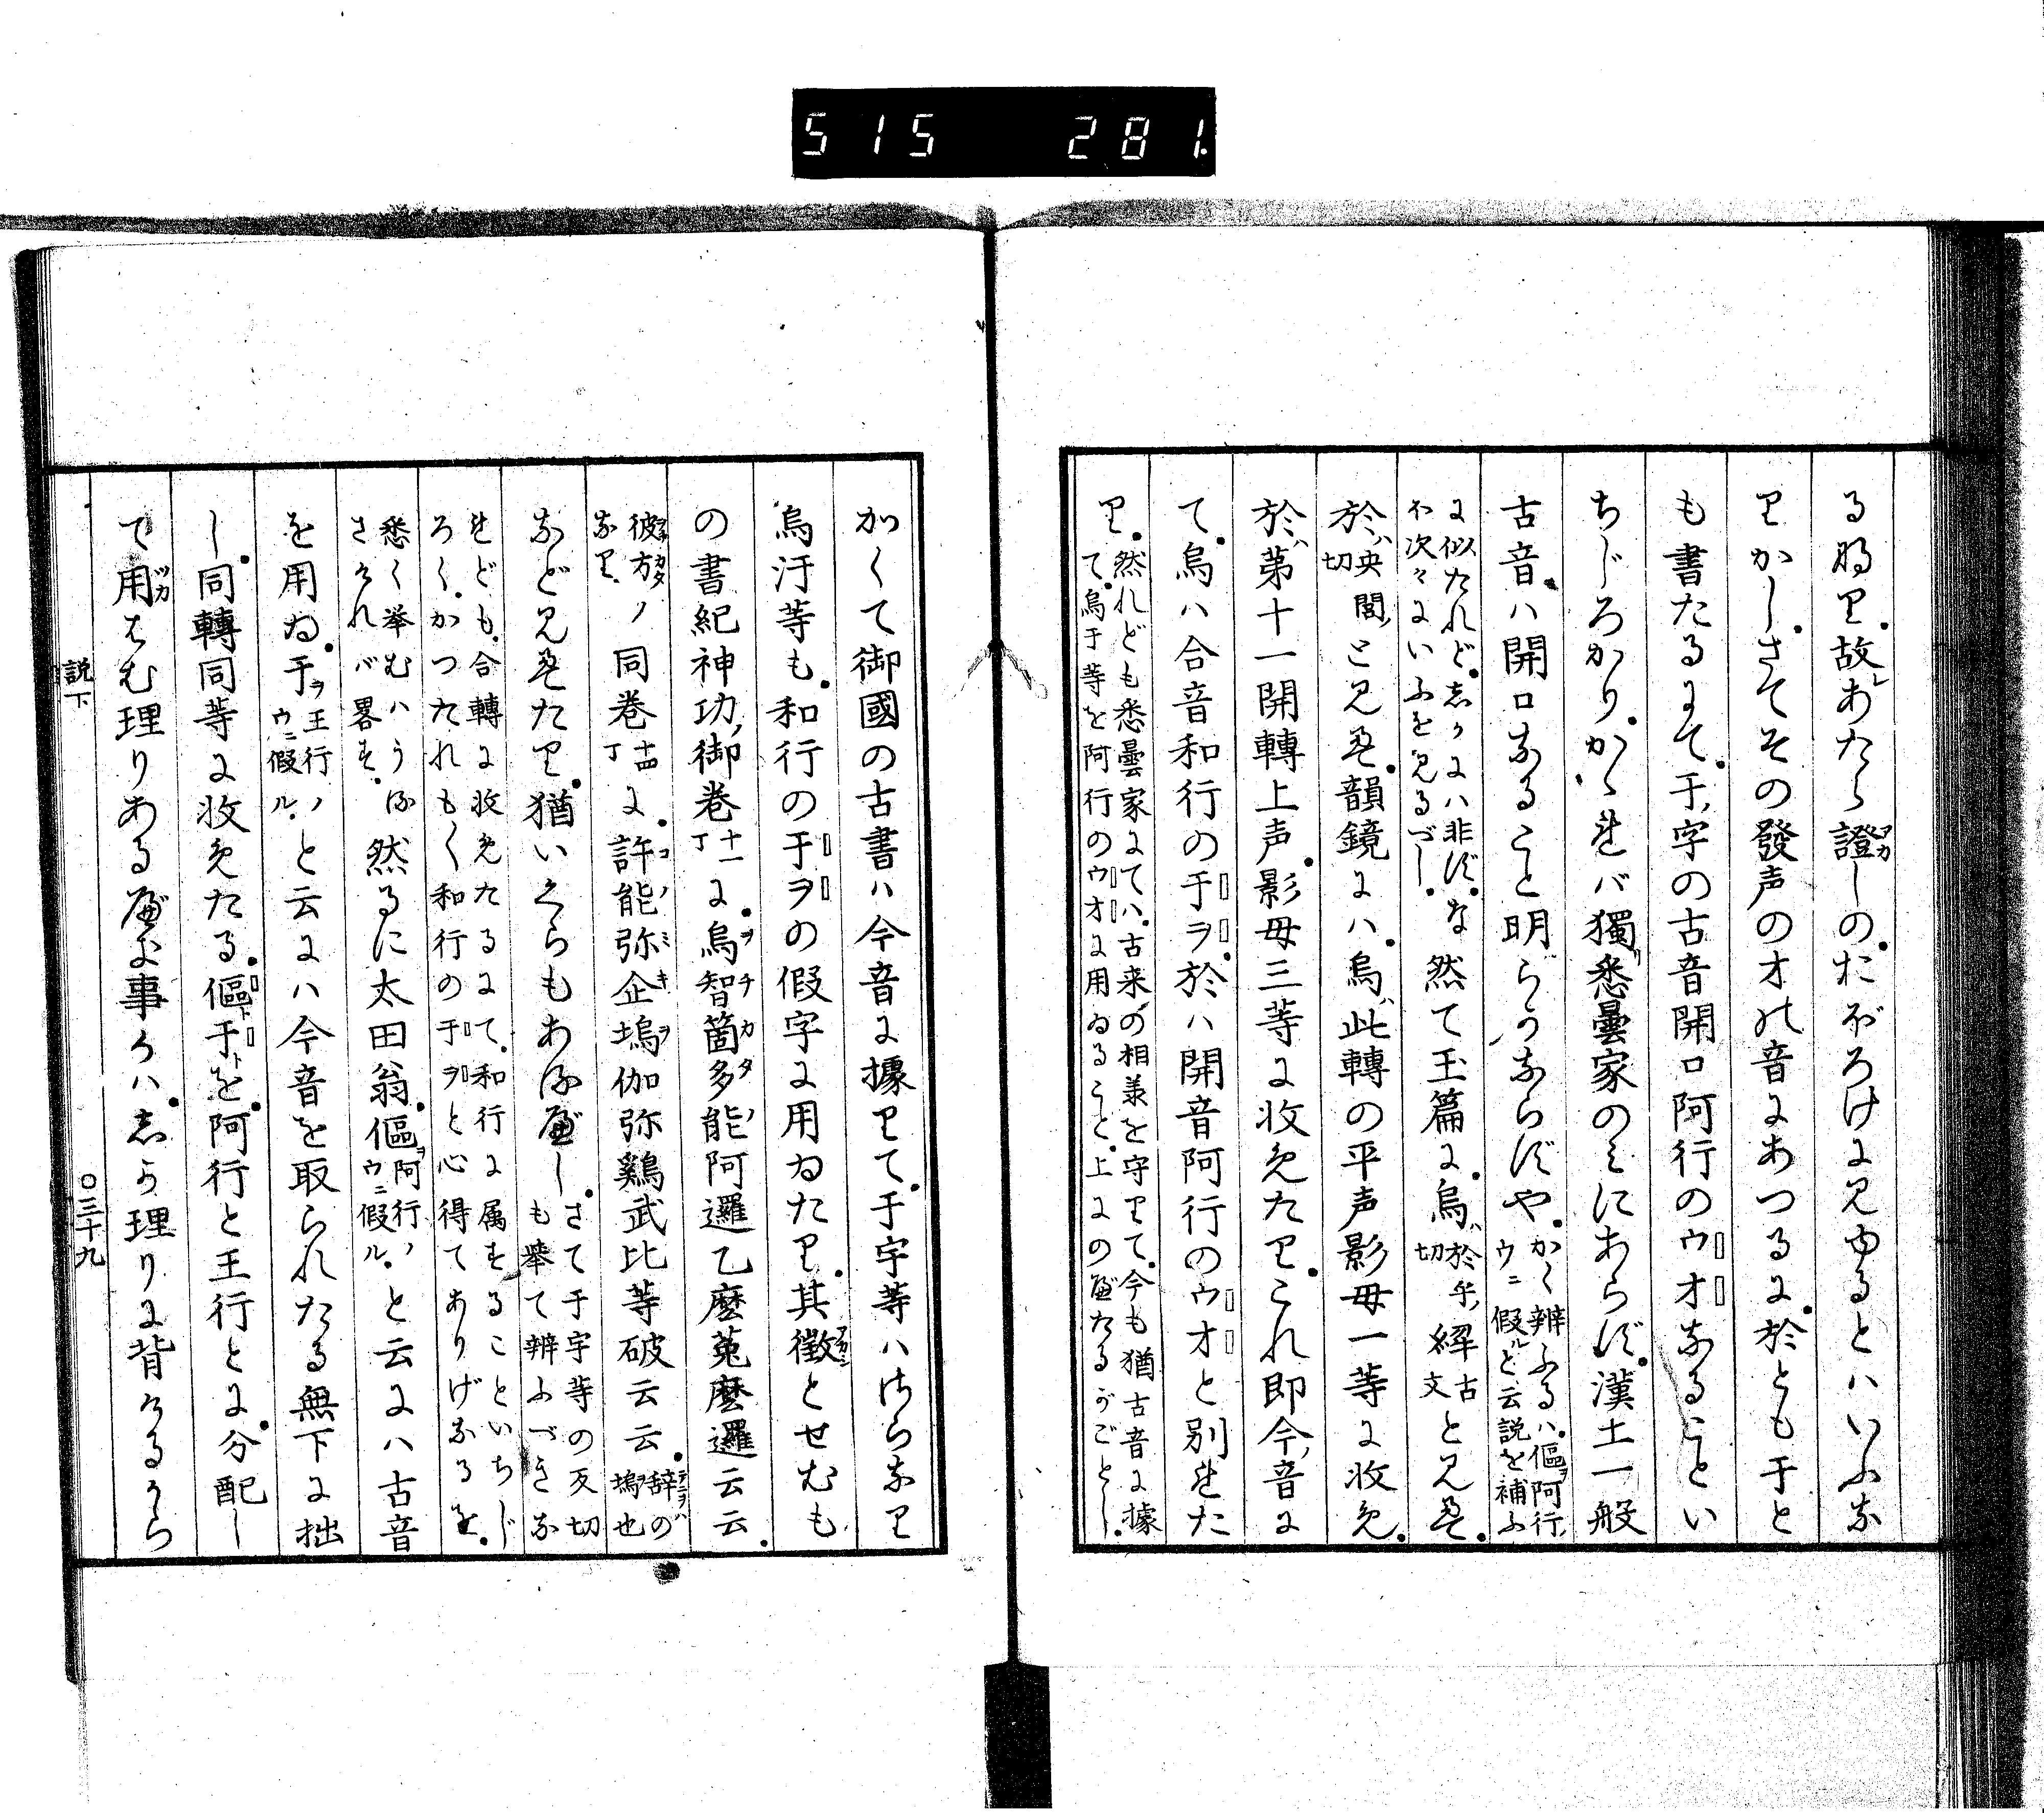 515 281
る也。故あたら證しの。おぼろけに見ゆるとハいふな
りかし。さてその發声のオの音にあつるに。於とも于と
も書たるにて。于字の古音開口阿行のウオなることい
ちじろかり。かゝれバ獨悉曇家のミにあらず。漢土一般
古音ハ開口なること明らかならずや。かく辨ふるハ。傴阿行ノ
ウニ假ルと云説を補ふ
に似たれど。志かにハ非ず。な
ほ次々にいふを見るべし。然て玉篇に。烏於乎切。䋣古文と見え。
於央閭切と見え。韻鏡にハ。烏此轉の平声影母一等に收め。
於ハ第十一開轉上声。影母三等に收めたり。これ即今音に
て。烏ハ合音和行の于ヲ。於ハ開音阿行のウオと別れた
り。然れども悉曇家にてハ。古来の相義を守りて。今も猶古音に據
て。烏于等を阿行のウオに用ゐること。上にのべたるがごとし。
かくて御國の古書ハ今音に據りて。于宇等ハさらなり
烏汙等も。和行の于ヲの假字に用ゐたり。其徴とせむも
の書紀神功御巻十一丁に。烏智箇多能阿邏乙麼菟麼邏云云。
彼方ノ
なり
同巻十四丁に。許能弥企塢伽弥鷄武比等破云云。辞の
塢也
など見えたり。猶いくらもあるべし。さて于宇等の反切
も舉て辨ふべきな
れども。合轉に收めたるにて。和行に属することいちじ
ろく。かつたれもく和行の于ヲと心得てありげなるを。
悉く挙むハうる
さけれバ畧す。然るに太田翁。傴阿行ノ
ウニ假ル。と云にハ古音
を用ゐ。于ヲ王行ノ
ウニ假ル。と云にハ今音を取られたる無下に拙
し。同轉同等に收めたる。傴ト于トを。阿行と王行とに。分配し
て用はむ理りあるべき事かハ。志か理りに背けるから
説下
〇三十九